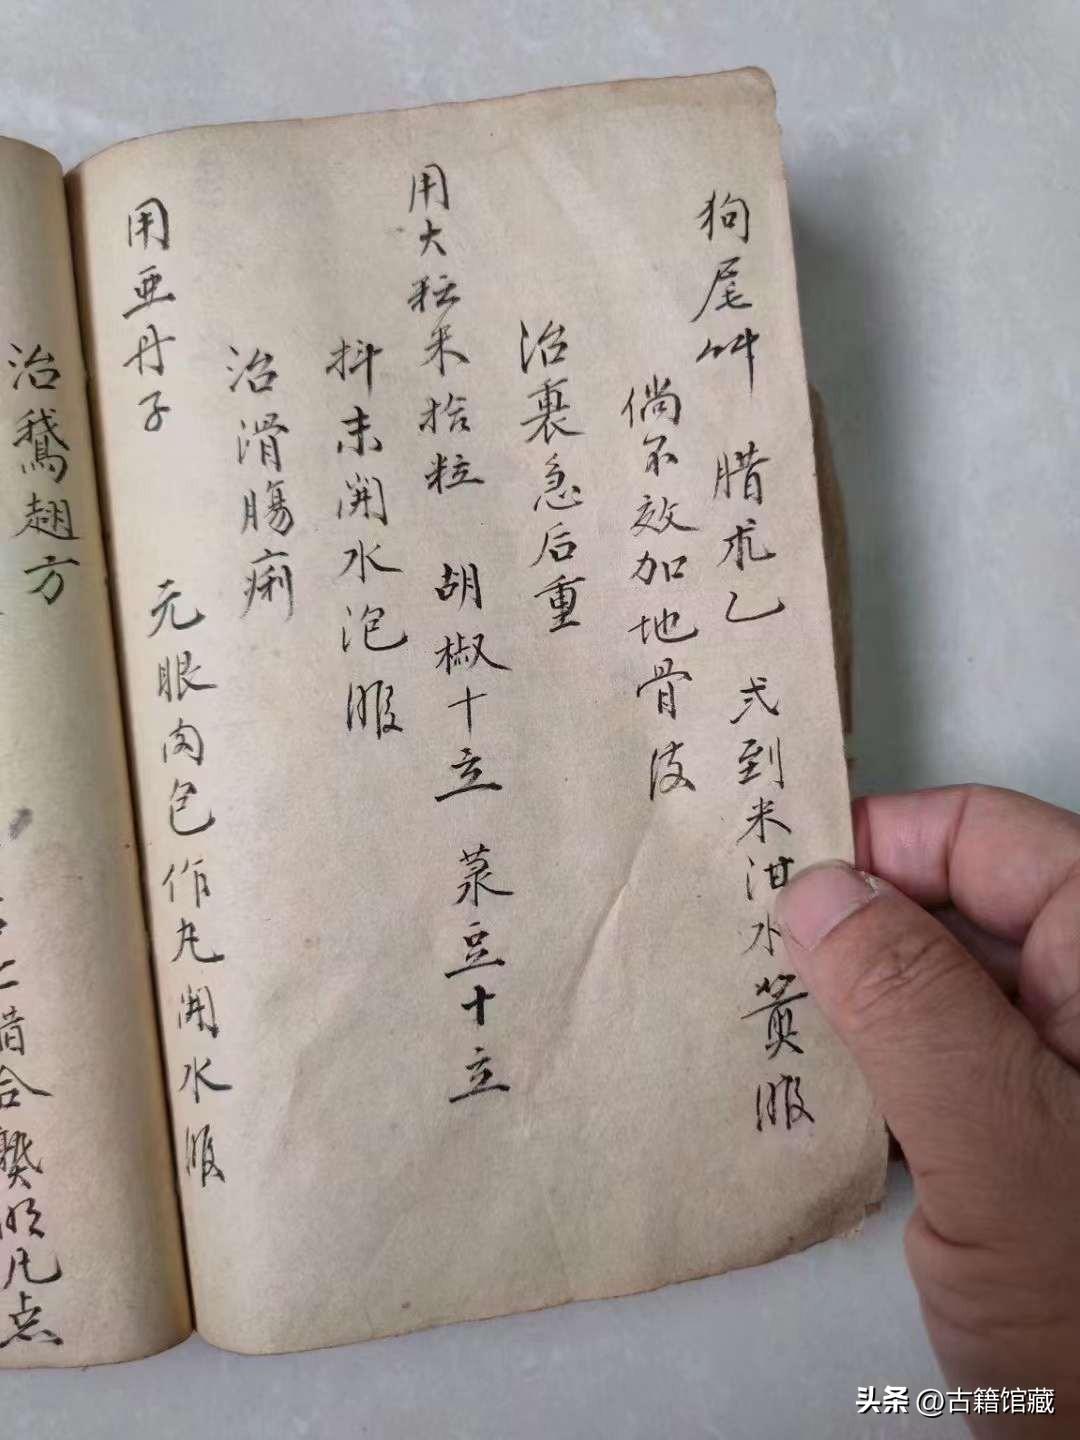 狗尾艸 腊朮乙 弍到米泔水煑服
倘不效加地骨皮
治裏急后重
用大粒米拾粒 胡椒十立 菉豆十立
抖末開水泡服
治滑腸痢
用亜丹子 元眼肉包作丸開水服
治鵝翅方
頭条 @古籍馆藏